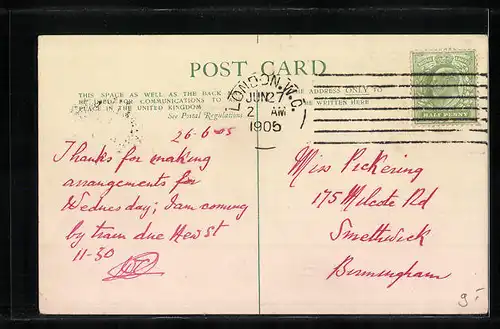 POST CARD
THIS SPACE AS WELL AS THE BACK MAY
BE USED FOR COMMUNICATIONS TO ANY
PLACE IN THE UNITED KINGDOM
See Postal Regulations
THE ADDRESS ONLY TO
BE WRITTEN HERE
LONDON. W.C.
JUN 27
2 AM
1905
HALF PENNY
26-6-05
Thanks for making
arrangements for
Wednesday; I am coming
by train due New St
11-30
Miss Pickering
175 Milcote Rd
Smethwick
Birmingham
9-